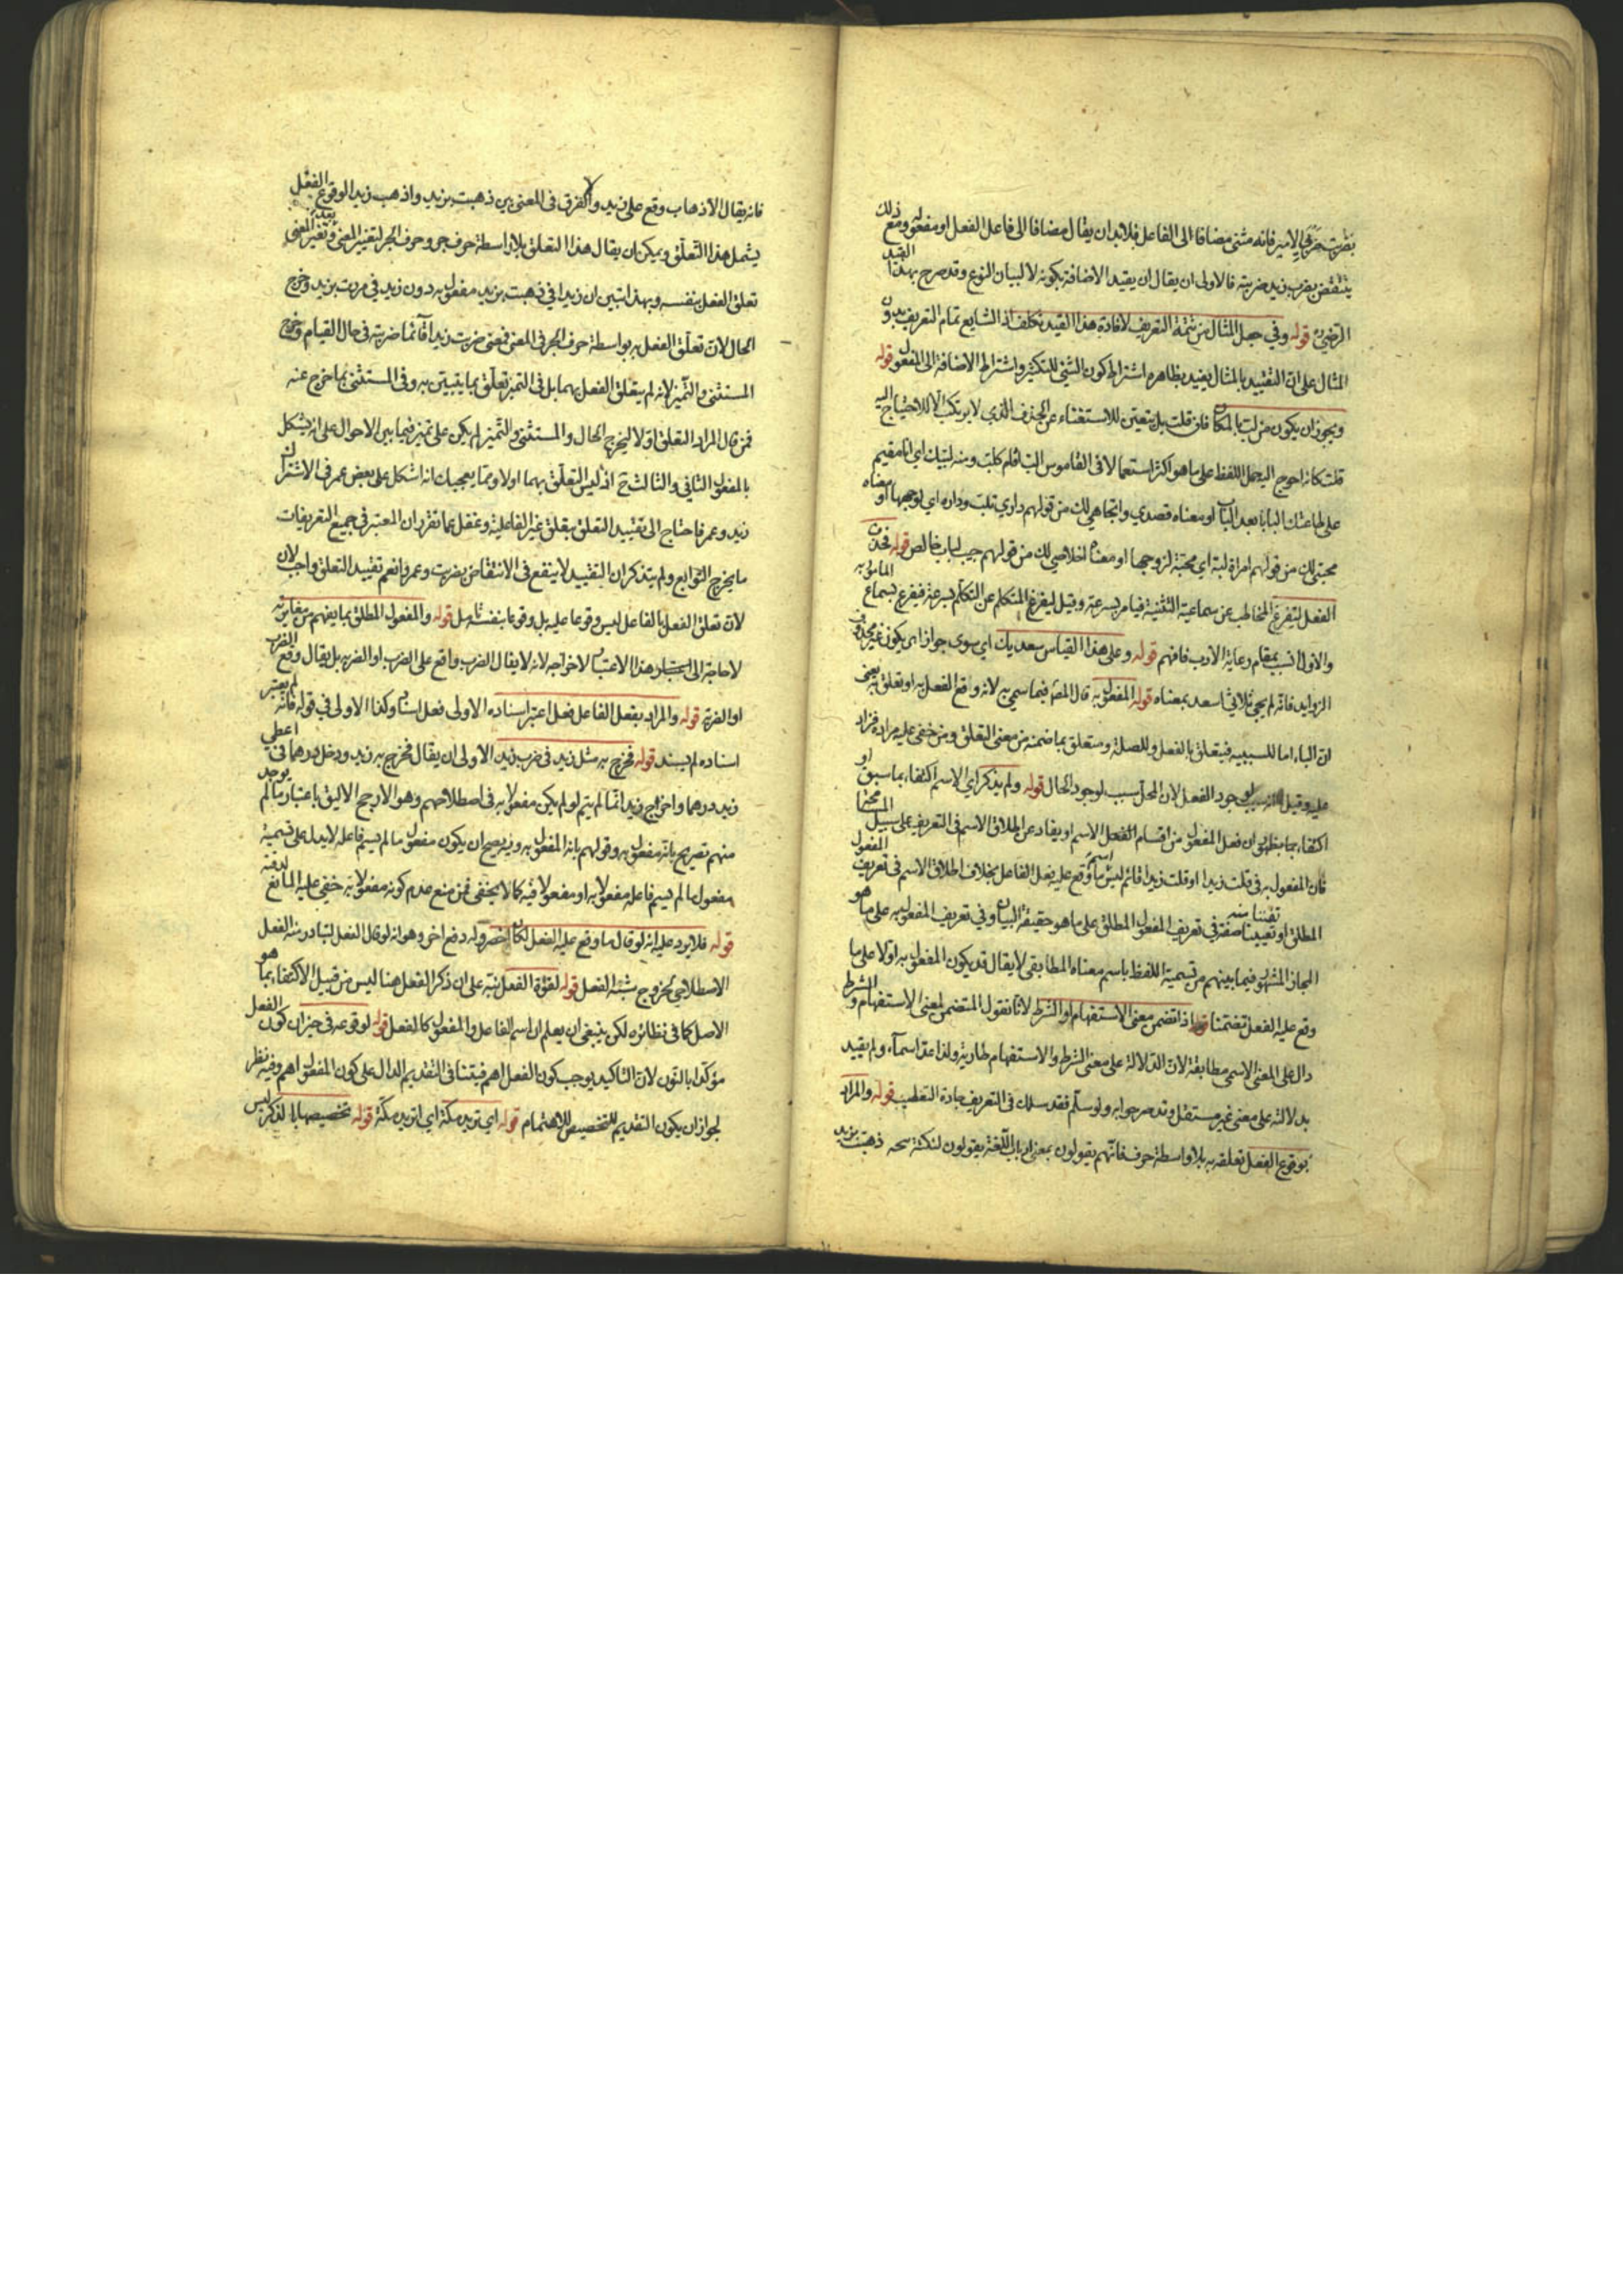 بضربت ضربي الامير فانه مثنى مضافا الى الفاعل فلابد ان يقال مضافا الى فاعل الفعل او مفعوله ومع ذلك
ينتقض بضرب زيد ضربته فالاولى ان يقال ان يقيد الاضافة بكونه لا لبيان النوع وقد صرح بهذا القيد
الرضي قوله وفي جعل المثال من تتمة التعريف لافادة هذا القيد تكلف اذ الشايع تمام التعريف بدون
المثال على ان التقييد بالمثال يفيد بظاهره اشتراط كون المثنى للتكثير واشتراط الاضافة الى المفعول قوله
ويجوز ان يكون من لب بالمكان فان قلت بل متعين للاستغناء عن الحذف الذي لا يرتكب الا للاحتياج اليه
قلت كانه احوج اليه حمل اللفظ على ما هو اكثر استعمالا في القاموس الب اقام كلب ومنه لبيك اي انا مقيم
على طاعتك البابا بعد الباب او معناه قصدي واتجاهي لك من قولهم داري تلب داره اي تواجهها او معناه
محبتي لك من قولهم امراة لبة اي محبة لزوجها او معناه اخلاصي لك من قولهم حب لباب خالص قوله فحذف
الفعل ليتفرغ المخاطب عن سماعه التثنية فيامر بسرعة وقيل ليفرغ المتكلم عن التكلم بسرعة فيفرغ لسماع المامور به
والاول انسب بمقام رعاية الادب فافهم قوله وعلى هذا القياس سعديك اي سوى جواز ان يكون غير محذوف
الزوايد فانه لم يجئ ثلاثي اسعد بمعناه قوله المفعول به قال المص فيما سمي به لانه واقع الفعل به او تعلق به يعنى
ان الباء اما للسببية فيتعلق بالفعل وللصلة ومتعلق بما ضمنه من معنى التعلق ومن خفي عليه مراده فزاد
عليه وقيل لانه سبب لوجود الفعل لان المحل سبب لوجود الحال قوله ولم يذكر اي الاسم اكتفاء بما سبق او
اكتفاء بما يظهر ان فعل المفعول من اقسام الاسم او يقاد عن اطلاق الاسم في التعريف على سبيل المسامحة
فان المفعول به في قلت زيدا او قلت زيدا قائم ليس اسم ما وقع عليه فعل الفاعل بخلاف اطلاق الاسم في تعريف المفعول
المطلق او تفننا منه في تعريف المفعول المطلق على ما هو حقيقة البيان وفي تعريف المفعول به على ما هو
المجاز المشهور فيما بينهم من تسمية اللفظ باسم معناه المطابقي لا يقال قد يكون المفعول به اولا على ما
وقع عليه الفعل تضمنا قوله اذا تضمن معنى الاستفهام او الشرط لانا نقول المتضمن لمعنى الاستفهام والشرط
دال على المعنى الاسمي مطابقة لان الدلالة على معنى الشرط والاستفهام طارية ولذا عد اسماء ولم يقيد
بدلالته على معنى غير مستقل وقد مر جوابه ولو سلم فقد سلك في التعريف جادة التغليب قوله والمراد
بوقوع الفعل تعلقه به بلا واسطة حرف فانهم يقولون بمعنى ارباب اللغة يقولون لنكتة ذهبت بزيد
فانه يقال الاذهاب وقع على زيد ولا فرق في المعنى بين ذهبت بزيد واذهب زيدا لوقوع الفعل
يشمل هذا التعلق ويمكن ان يقال هذا التعلق بلا واسطة حرف جر وحرف الجر لتغيير المعنى وتغير المعنى
تعلق الفعل بنفسه وبهذا تبين ان زيدا في ذهبت بزيد مفعول به دون زيد في مررت بزيد وخرج
الحال لان تعلق الفعل به بواسطة حرف الجر في المعنى فمعنى ضربت زيدا قائما ضربته في حال القيام وخرج
المستثنى والتميز لانه لم يتعلق الفعل بهما بل في التميز تعلق بما يتبين به وفي المستثنى بما خرج عنه
فمن قال المراد التعلق اولا ليخرج الحال والمستثنى والتميز لم يكن على تميز فيما بين الاحوال على انه يشكل
بالمفعول الثاني والثالث ح اذ ليس التعلق بهما اولا ومما يعجبك انه اشكل على بعض عمر في الاشتراك
زيد وعمر فاحتاج الى تقييد التعلق بتعلق غير الفاعلية وغفل عما تقرر ان المعتبر في جميع التعريفات
ما يخرج التوابع ولم يتذكر ان التقييد لا ينفع في الانتقاض بضربت وعمرو نعم تقييد التعلق واجب لان
لان تعلق الفعل بالفاعل ليس وقوعا عليه بل وقوعا بنفسه تامل قوله والمفعول المطلق بما يفهم من مغايرته
لا حاجة الى هذا الاعتبار لاخراجه لانه لا يقال الضرب واقع على الضرب او الضربة بل يقال وقع الضرب
او الضربة قوله والمراد بفعل الفاعل فعل اعتبر اسناده الاولى فعل اسناد وكذا الاولى في قوله فانه لم يعتبر
اسناده لم يسند قوله فخرج به مثل زيد في ضرب زيد الاولى ان يقال فخرج به زيد ودخل درهما في اعطي
زيد درهما واخراج زيد انما لم يتم لو لم يكن مفعولا به في اصطلاحهم وهو الارجح الاليق باعتبار ما لم يوجد
منهم تصريح بانه مفعول به وقولهم بانه المفعول به ويصح ان يكون مفعول ما لم يسم فاعله لا يدل على تسمية
مفعول ما لم يسم فاعله مفعولا به او مفعولا فيه كما لا يخفى فمن منع عدم كونه مفعولا به خفي عليه المانع لدقته
قوله فلا يرد عليه انه لو قال ما وقع عليه الفعل لكان اخصر وله دفع اخر وهو انه لو قال الفعل لتبادر منه الفعل
الاصطلاحي لخروج شبه الفعل قوله لقوة الفعل نبه على ان ذكر الفعل هنا ليس من قبيل الاكتفاء بما هو
الاصل كما في نظائره لكن ينبغي ان يعلم ان اسم الفاعل والمفعول كالفعل قوله لوقوعه في حيز ان كون الفعل
مؤكدا بالنون لان التاكيد يوجب كون الفعل اهم فيتنافى التقديم الدال على كون المفعول اهم وفيه نظر
لجواز ان يكون التقديم للتخصيص لا للاهتمام قوله اي تريد مكة اي اتريد مكة قوله تخصيصها بالذكر ليس